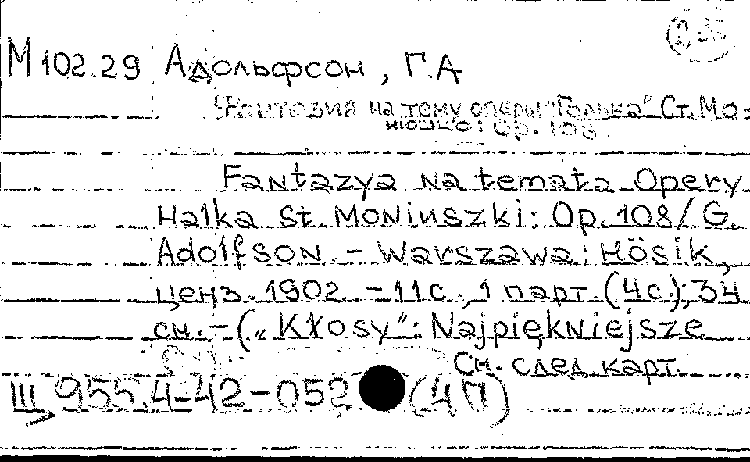 М 102.29 Адольфсон, Г.А
Фантазия на тему оперы "Галька" Ст. Мо=
нюшко: Op. 108
Fantazya na temata Opery
Halka St. Moniuszki: Op. 108/G.
Adolfson. - Warszawa: Hösik,
ценз. 1902. - 11с., 1 парт. (4с.); 34
см. - („Kłosy": Najpiękniejsze
См. след. карт.
III 955.4-42-052 (4П)